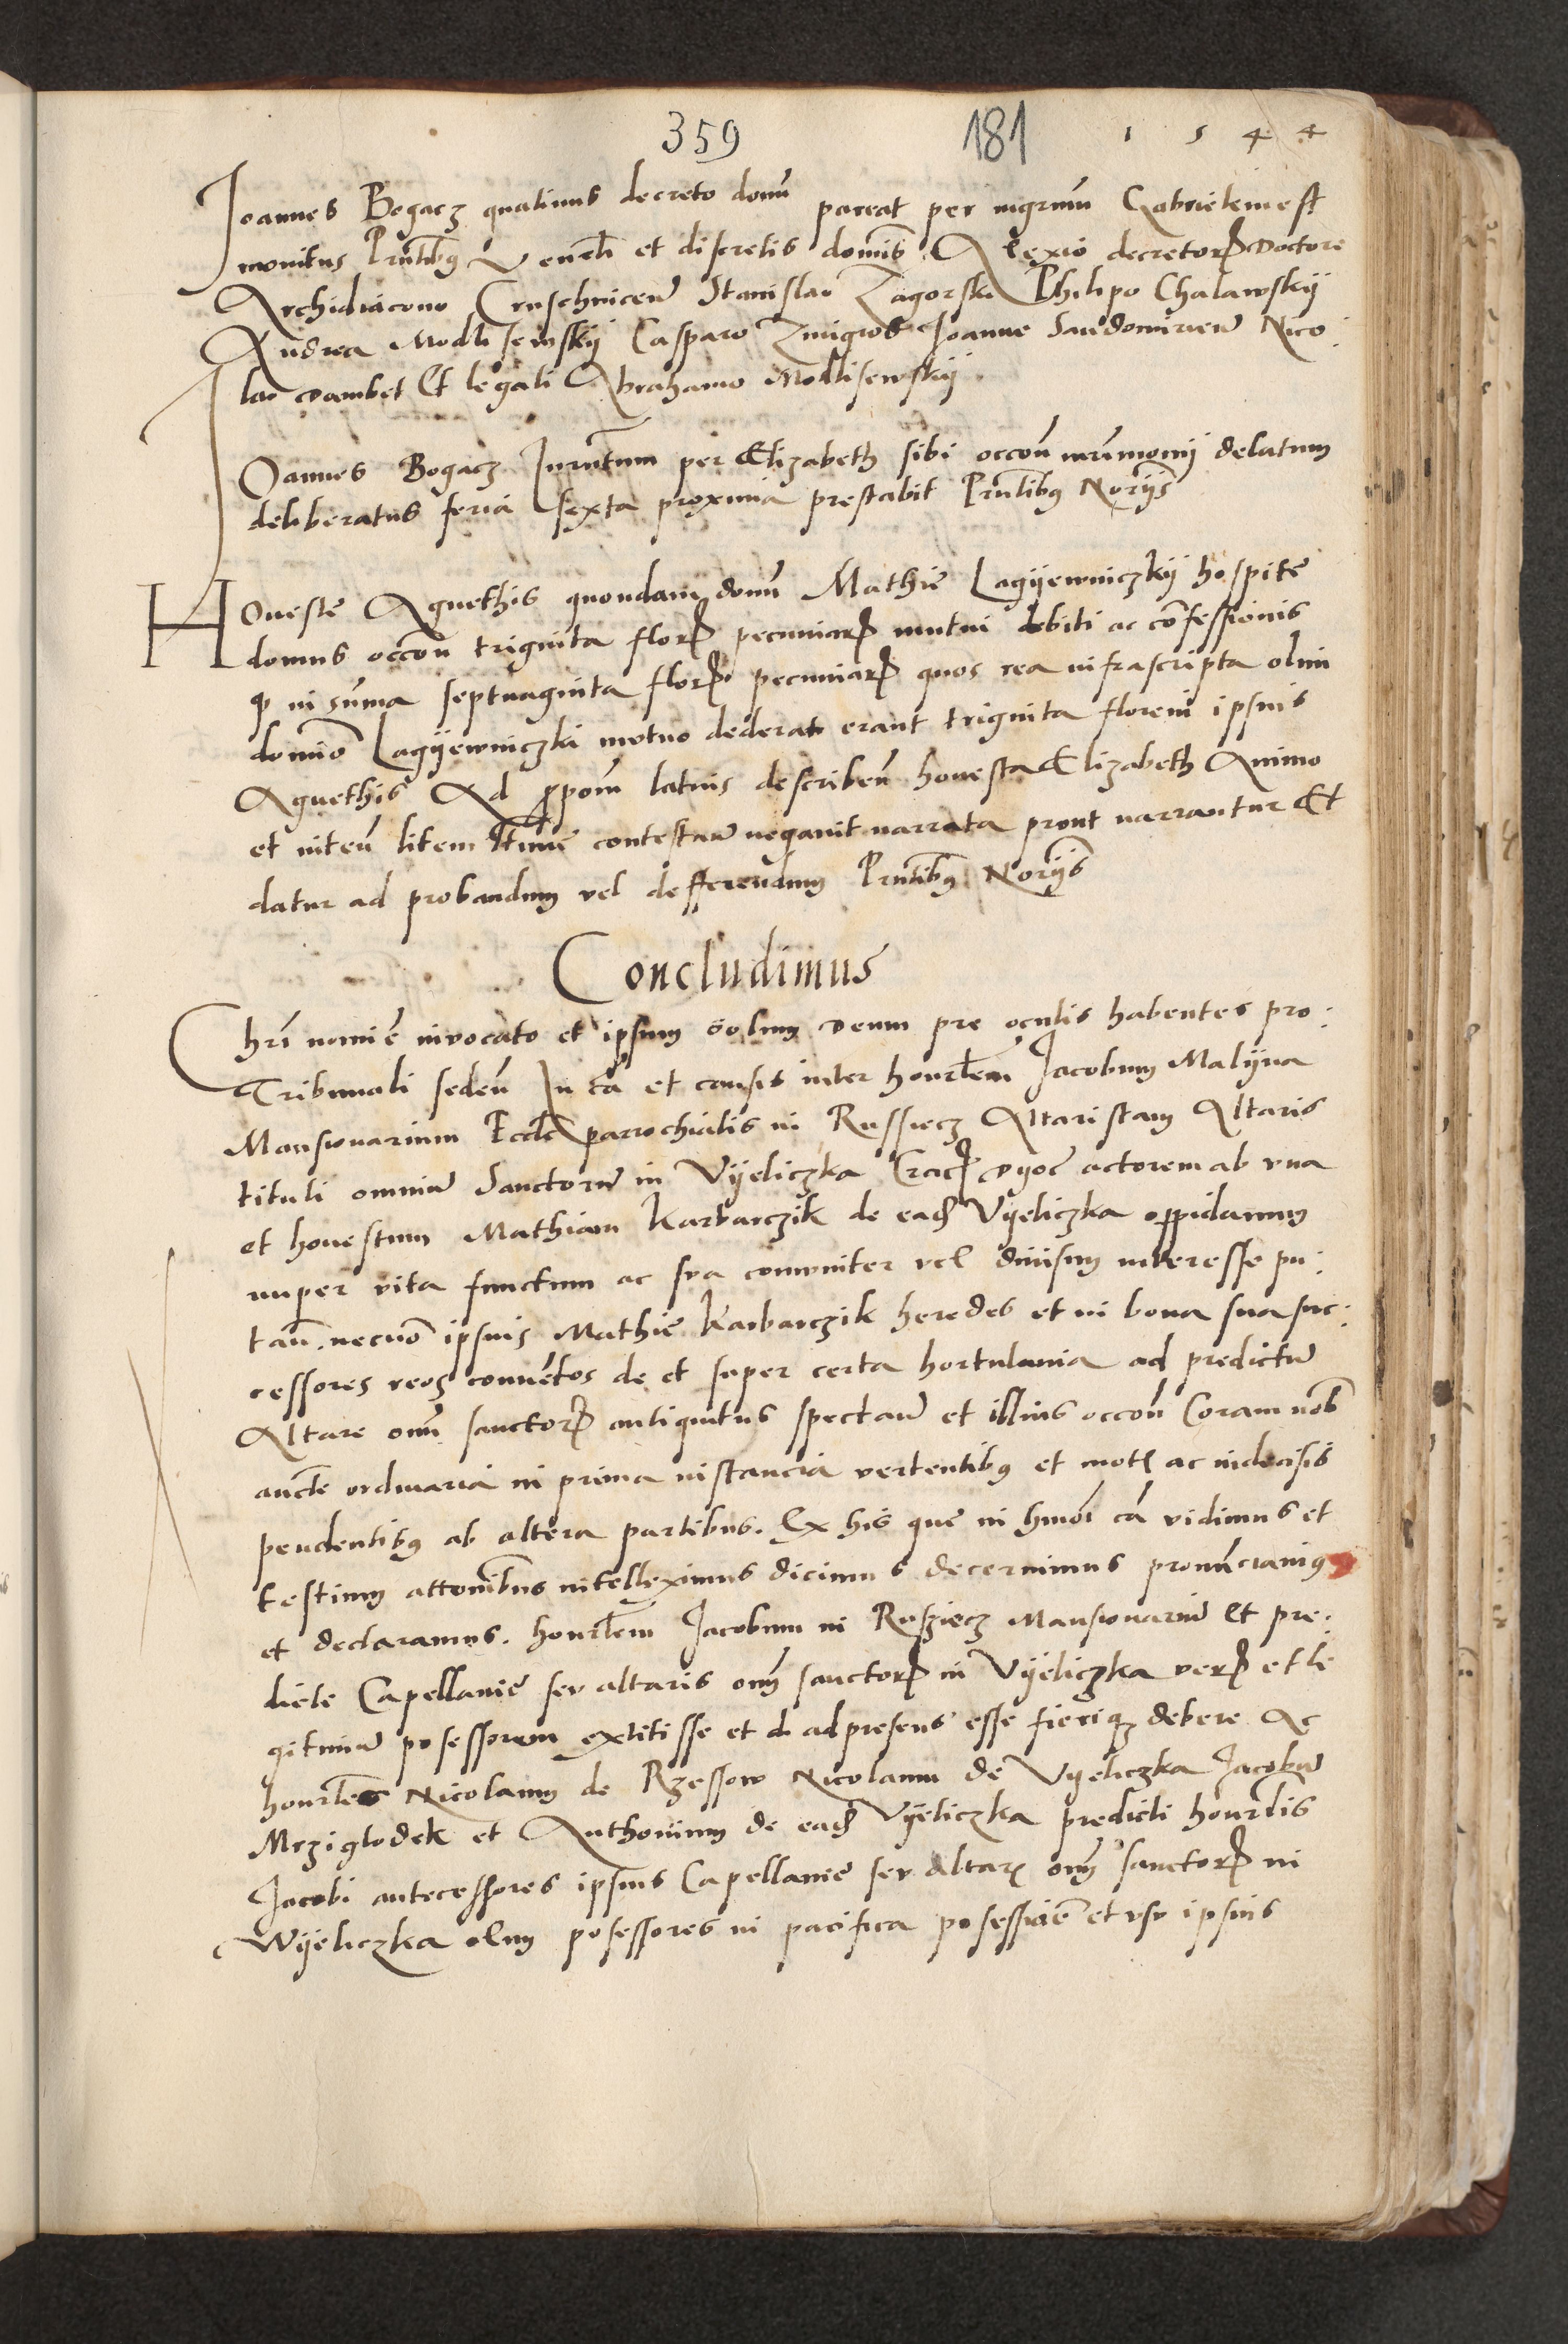 359 181 1 5 4 4
Joannes Bogacz quatinus decreto domĩ pareat per ingrmũ Gabrielem est
monitus Pñtibꝰ Veneɫi et discretis domĩs Alexio decretorꝝ doctore
Archidiacono Cruschuiceñ Stanislao Zagorski Philipo Chalawskij
Andrea Modlisewskij Casparo Zmigrod Joanne Sandomirieñ Nico:
lao Dambek Et legali Abrahamo Modlisewskij
Joannes Bogacz Jurñtum per Elizabeth sibi occoñ mr̃imonij delatum
deliberatus feria sexta proxima prestabit Pñtibꝰ Norijs
Honeste Agnethis quondam domĩ Mathie Lagyewniczkij hospite
domus occoñ triginta florꝝ pecuniarꝝ mutui debiti ac cõfessionis
ꝙ in sũma septuaginta florꝝ pecuniarꝝ quos rea infrascripta olim
domino Lagyewniczki mutuo dederat erant triginta floreni ipsius
Agnethis Ad ꝓpom̃ latius describeñ honesta Elizabeth Animo
et inteñ litem contestañ negauit narrata prout narrantur Et
datur ad probandum vel defferendum Pñtibꝰ Norijs
Concludimus
Chrĩ nomine inuocato et ipsum solum deum pre oculis habentes pro:
Tribunali sedeñ In cã et causis inter honorꝉem Jacobum Malyna
Mansionarium Eccle parrochialis in Russiecz Altaristam Altaris
tituli omnium Sanctorum in Vyeliczka Cracꝝ dyoc̃ actorem ab vna
et honestum Mathiam Karbarczik de eadꝫ Vyeliczka oppidanum
nuper vita functum ac sua comuniter vel diuisim interesse pu:
tañ. necnõ ipsius Mathie Karbarczik heredes et in bona sua suc:
cessores reos conuẽtos de et super certa hortulania ad predictũ
Altare om̃ sanctorꝝ antiquitus spectañ et illius occoñ Coram nob̃
aucte ordinaria in prima instancia vertentibꝰ et motꝭ ac indecisis
pendentibꝰ ab altera partibus. Ex his que in hmõi cã vidimus et
testium attonĩbus intelleximus dicimus decernimus pronũctiamꝰ
et declaramus. honorꝉem Jacobum in Rusziecz Mansionariũ Et pre:
dicte Capellanie seu altaris om̃ sanctorꝝ in Vyeliczka verꝝ et le
gitimũ posessorem extitisse et ad presens esse fieriqꝫ debere Ac
honorꝉes Nicolaum de Rzessow Nicolaum de Vyeliczka Jacobũ
Mrziglodek et Anthonium de eadꝫ Vyeliczka predicti honorꝉis
Jacobi antecessores ipsius Capellanie seu Altarꝭ om̃ sanctorꝝ in
Wyeliczka olim posessores in pacifica posessiõe et vsu ipsius